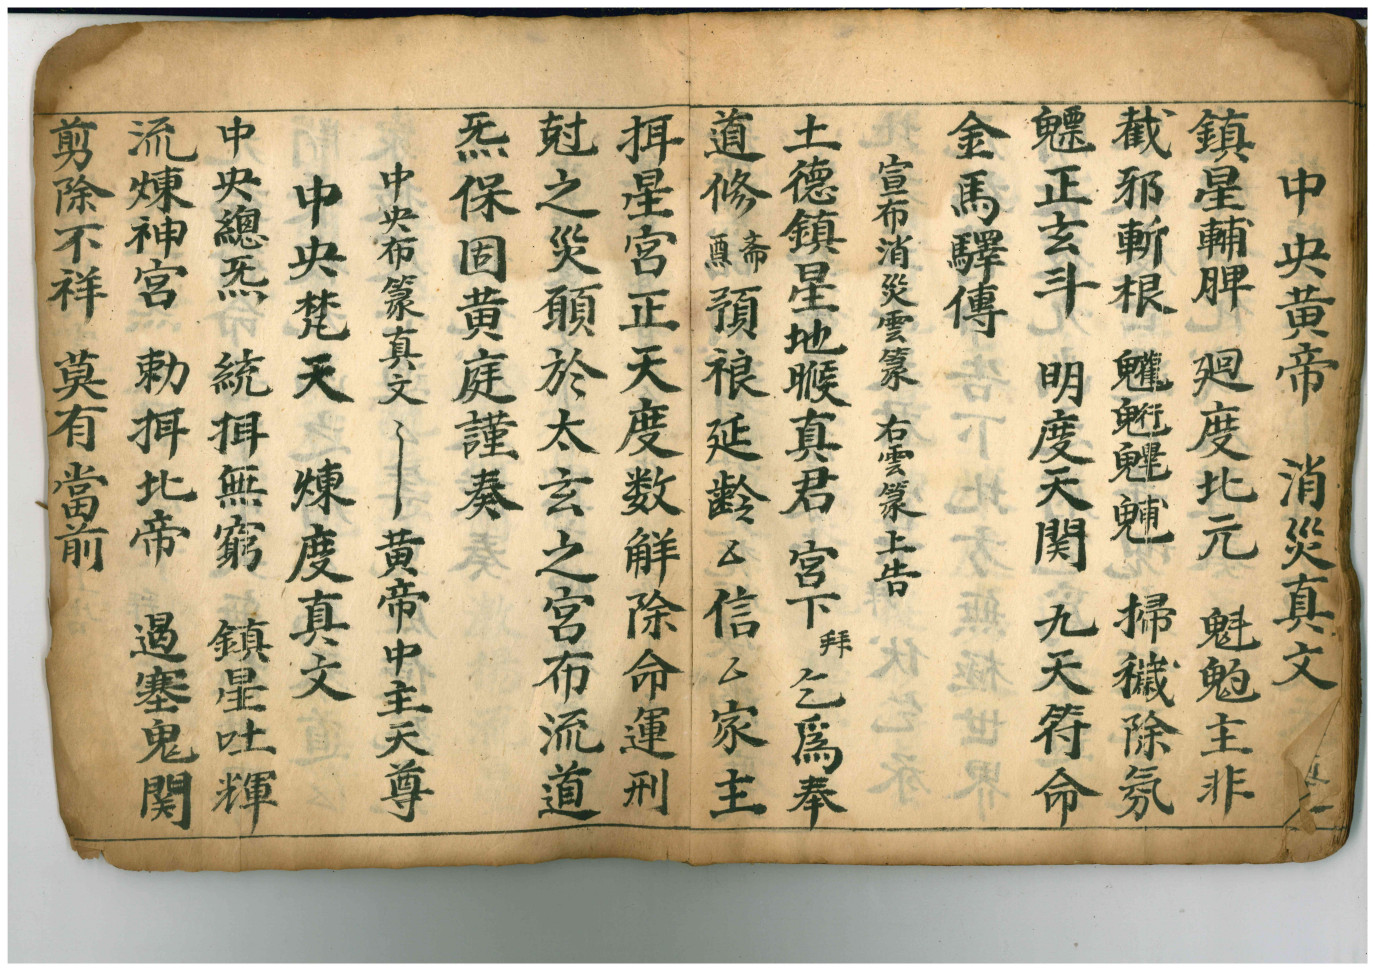 中央黄帝 消災真文
鎮星輔脾 廻度北元 魁魓主非
截邪斬根 魓 掃穢除氛
魒正玄斗 明度天関 九天符命
金馬驛傳
宣布消災雲篆 右雲篆上告
土德鎮星地睺真君 宮下拜乞為奉
道修斋預禳延齡厶信厶家主
挕星宮正天度数觧除命運刑
尅之災願於太玄之宮布流道
炁保固黄庭謹奏
中央布篆真文 黄帝中主天尊
中央梵天 煉度真文
中央總炁 統挕無窮 鎮星吐輝
流煉神宮 勅挕北帝 遏塞鬼関
剪除不祥 莫有當前